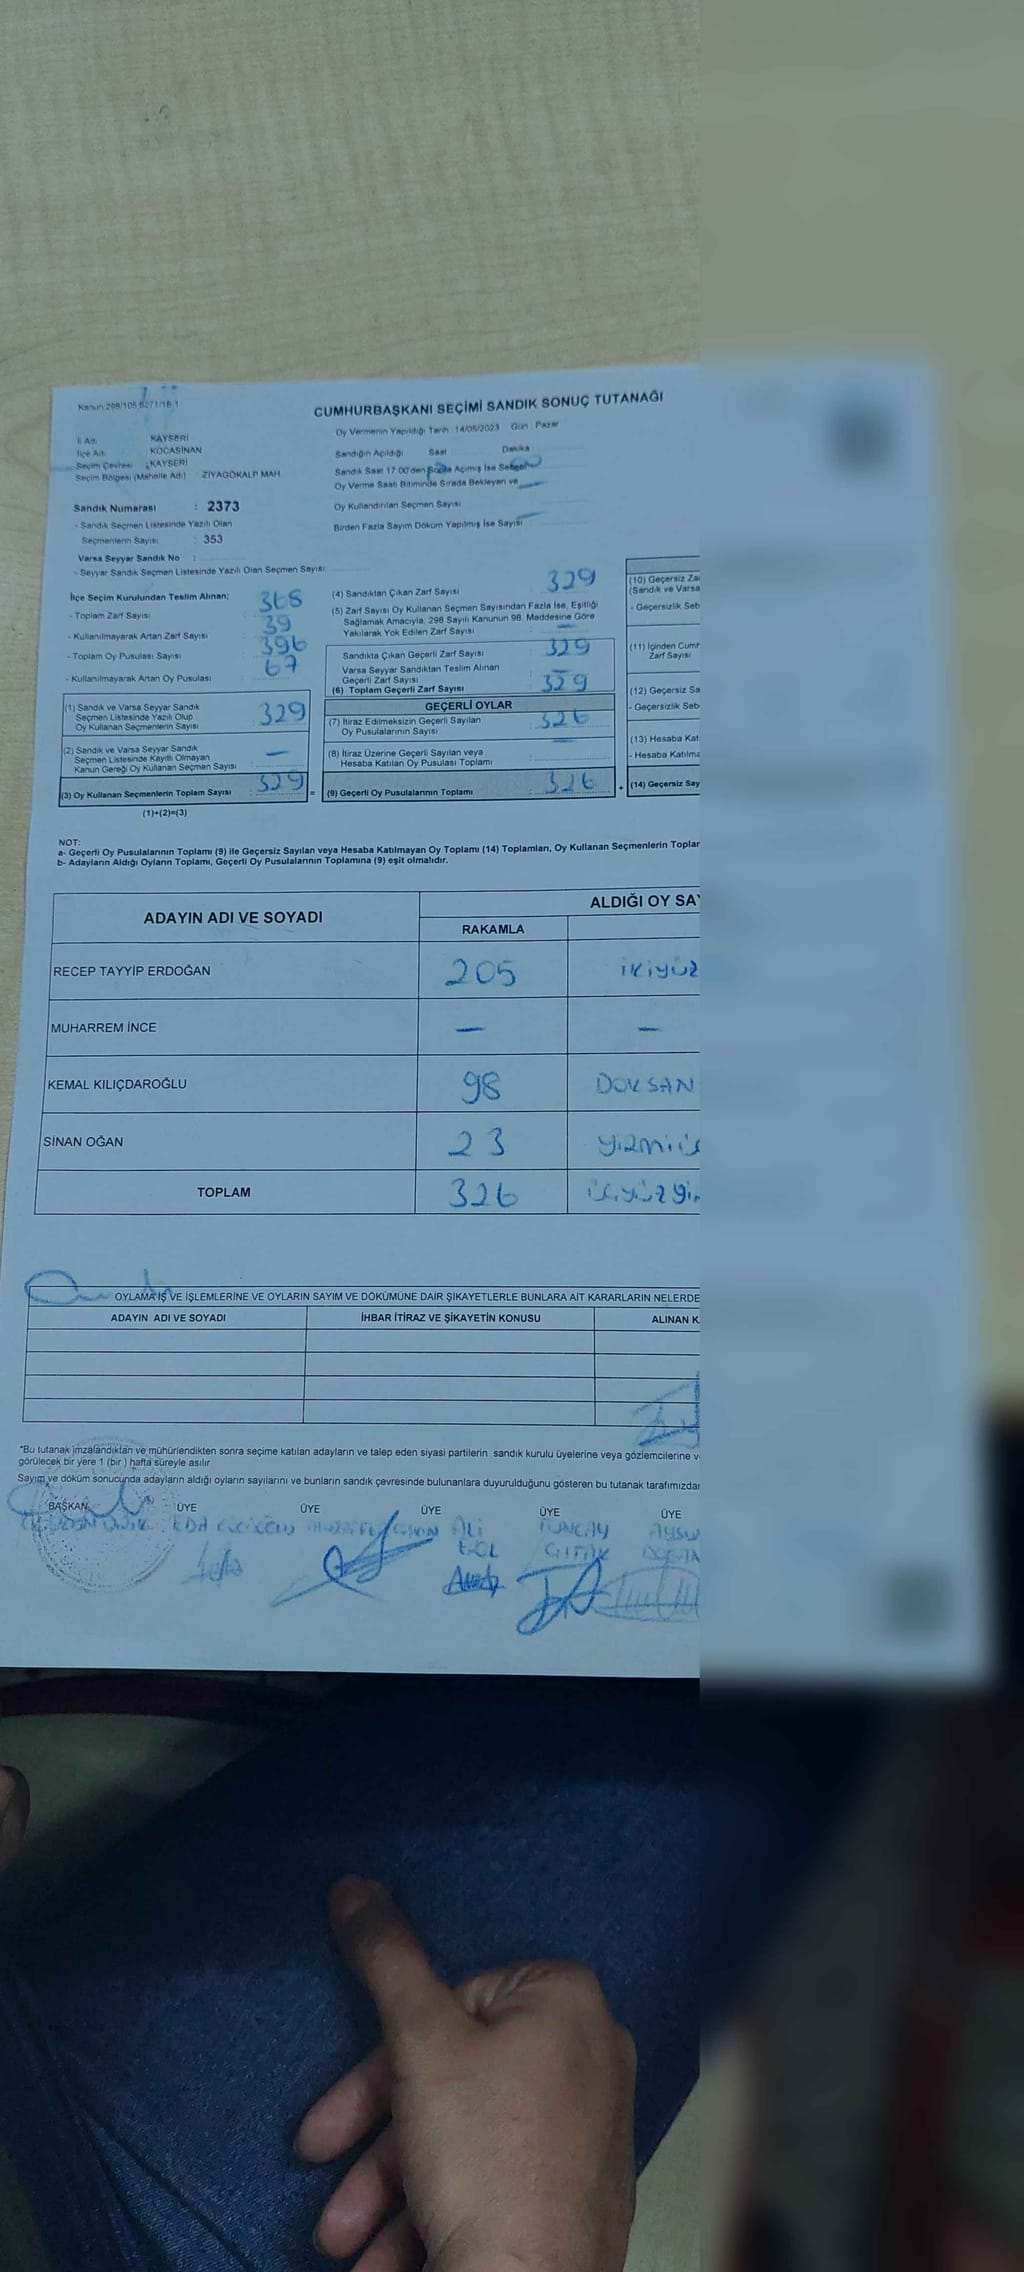 Kanun 298/105
CUMHURBAŞKANI SEÇİMİ SANDIK SONUÇ TUTANAĞI
Oy Vermenin Yapıldığı Tarih : 14/05/2023 Gün : Pazar
İl Adı KAYSERİ
İlçe Adı KOCASİNAN
Seçim Çevresi KAYSERİ
Seçim Bölgesi (Mahalle Adı) ZİYAGÖKALP MAH
Sandığın Açıldığı Saat Dakika
Sandık Saat 17:00'den Açımış İse
Oy Verme Saati Bitiminde Sırada Bekleyen ve
Oy Kullandırılan Seçmen Sayısı
Birden Fazla Sayım Döküm Yapılmış İse Sayısı
Sandık Numarası : 2373
- Sandık Seçmen Listesinde Yazılı Olan
Seçmenlerin Sayısı : 353
Varsa Seyyar Sandık No :
- Seyyar Sandık Seçmen Listesinde Yazılı Olan Seçmen Sayısı
İlçe Seçim Kurulundan Teslim Alınan:
- Toplam Zarf Sayısı 368
- Kullanılmayarak Artan Zarf Sayısı 39
- Toplam Oy Pusulası Sayısı 396
- Kullanılmayarak Artan Oy Pusulası 67
(1) Sandık ve Varsa Seyyar Sandık
Seçmen Listesinde Yazılı Olup
Oy Kullanan Seçmenlerin Sayısı 329
(2) Sandık ve Varsa Seyyar Sandık
Seçmen Listesinde Kayıtlı Olmayan
Kanun Gereği Oy Kullanan Seçmen Sayısı —
(3) Oy Kullanan Seçmenlerin Toplam Sayısı 329
(1)+(2)=(3)
(4) Sandıktan Çıkan Zarf Sayısı 329
(5) Zarf Sayısı Oy Kullanan Seçmen Sayısından Fazla İse, Eşitliği
Sağlamak Amacıyla, 298 Sayılı Kanunun 98. Maddesine Göre
Yakılarak Yok Edilen Zarf Sayısı —
Sandıkta Çıkan Geçerli Zarf Sayısı 329
Varsa Seyyar Sandıktan Teslim Alınan
Geçerli Zarf Sayısı —
(6) Toplam Geçerli Zarf Sayısı 329
GEÇERLİ OYLAR
(7) İtiraz Edilmeksizin Geçerli Sayılan
Oy Pusulalarının Sayısı 326
(8) İtiraz Üzerine Geçerli Sayılan veya
Hesaba Katılan Oy Pusulası Toplamı —
= (9) Geçerli Oy Pusulalarının Toplamı 326 +
(10) Geçersiz
(Sandık ve Varsa
- Geçersizlik
(11) İçinden
Zarf Sayısı
(12) Geçersiz
- Geçersizlik
(13) Hesaba
- Hesaba
(14) Geçersiz
NOT:
a- Geçerli Oy Pusulalarının Toplamı (9) ile Geçersiz Sayılan veya Hesaba Katılmayan Oy Toplamı (14) Toplamları, Oy Kullanan Seçmenlerin
b- Adayların Aldığı Oyların Toplamı, Geçerli Oy Pusulalarının Toplamına (9) eşit olmalıdır.
ADAYIN ADI VE SOYADI ALDIĞI OY
RAKAMLA
RECEP TAYYİP ERDOĞAN 205 İKİYÜZ
MUHARREM İNCE — —
KEMAL KILIÇDAROĞLU 98 DOKSAN
SİNAN OĞAN 23
TOPLAM 326
OYLAMA İŞ VE İŞLEMLERİNE VE OYLARIN SAYIM VE DÖKÜMÜNE DAİR ŞİKAYETLERLE BUNLARA AİT KARARLARIN
ADAYIN ADI VE SOYADI İHBAR İTİRAZ VE ŞİKAYETİN KONUSU ALINAN
*Bu tutanak imzalandıktan ve mühürlendikten sonra seçime katılan adayların ve talep eden siyasi partilerin sandık kurulu üyelerine veya gözlemcilerine
görülecek bir yere 1 (bir ) hafta süreyle asılır
Sayım ve döküm sonucunda adayların aldığı oyların sayılarını ve bunların sandık çevresinde bulunanlara duyurulduğunu gösteren bu tutanak
BAŞKAN ÜYE ÜYE ÜYE ÜYE ÜYE
ALİ TUNCAY